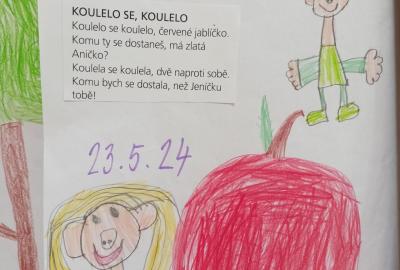 KOULELO SE, KOULELO
Koulelo se koulelo, červené jablíčko.
Komu ty se dostaneš, má zlatá
Aničko?
Koulela se koulela, dvě naproti sobě.
Komu bych se dostala, než Jeníčku
tobě!
23.5.24